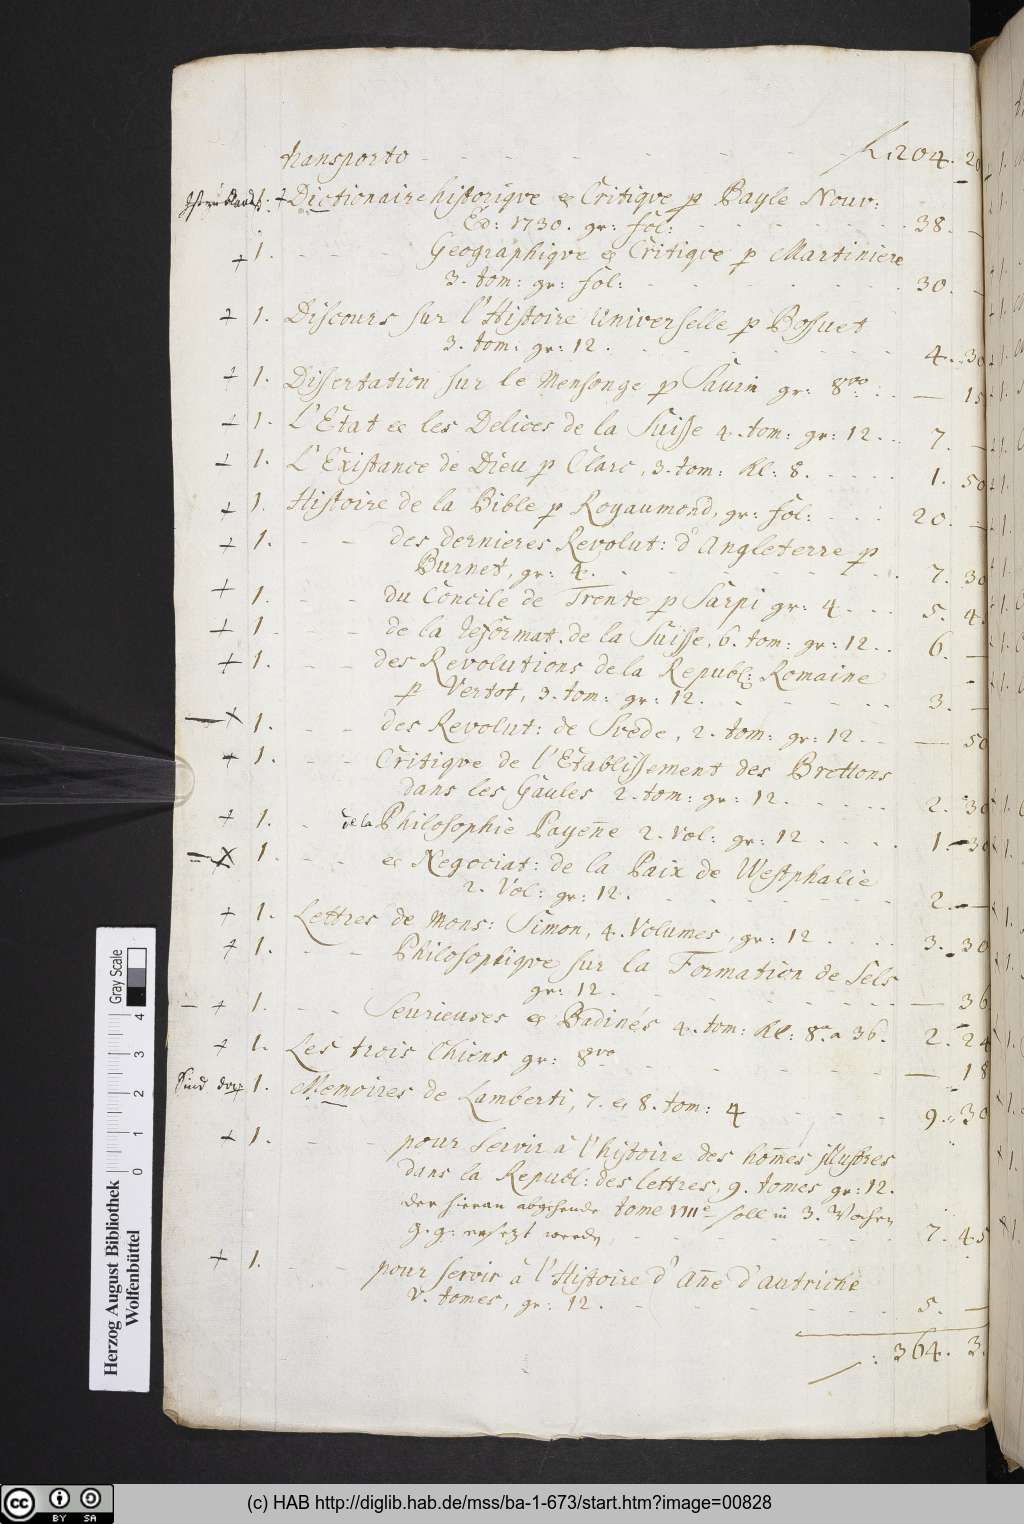 transporto - - - - - - - fl. 204. 20
1. + Dictionaire historiqve & Critiqve p Bayle Nouv:
Ed: 1730. gr: fol: - - - - - - 38. —
+ 1. - - - Geographiqve & Critiqve p Martiniere
3. tom: gr: fol: - - - - - - 30. —
+ 1. Discours sur l'Histoire Universelle p Bossuet
3. tom: gr: 12. - - - - - - 4. 30
+ 1. Dissertation sur le Mensonge p Saurin gr: 8vo: - — 15
+ 1. L'Etat & les Delices de la Suisse 4. tom: gr: 12. - 7. —
+ 1. L'Existance de Dieu p Clarc, 3. tom: Kl: 8. - - - - 1. 50
+ 1. Histoire de la Bible p Royaumond, gr: fol: - - - 20. —
+ 1. - - des dernieres Revolut: d'Angleterre p
Burnet, gr: 4. - - - - - - 7. 30
+ 1. - - du Concile de Trente p Sarpi gr: 4. - - - 5. 4
+ 1 - - - de la reformat. de la Suisse, 6. tom: gr: 12. . 6. —
+ 1. - - des Revolutions de la Republ: Romaine
p Vertot, 3. tom: gr: 12. - - - - - 3. —
— + 1. - - des Revolut: de Svede, 2. tom: gr: 12 - - — 50
+ 1. - - Critiqve de l'Etablissement des Brettons
dans les Gaules 2. tom: gr: 12. - - - - - 2. 30
+ 1. - de la Philosophie Payenne 2. Vol: gr: 12 - - - - 1. 30
— + 1. - - & Negociat: de la Paix de Westphalie
2. Vol: gr: 12. - - - - - - - 2. —
+ 1. Lettres de Mons: Simon, 4. Volumes, gr: 12 . - - - 3. 30
+ 1. - - Philosophiqve sur la Formation de Sels
gr: 12. - - - - - - - — 36
— + 1. - - Seurieuses & Badinés 4. tom: Kl: 8vo a 36. 2. 24
+ 1. Les trois Chiens gr: 8vo - - - - - - - — 18
sind 1. Memoires de Lamberti, 7. & 8. tom: 4 - - - - 9. 30
+ 1. - - pour servir à l'histoire des hom̄es illustres
dans la Republ: des lettres, 9. tomes gr: 12.
der hieran abgehende tome VIIIe soll in 3. Wochen
g. g: ersezt werden - - - - - - - 7. 45
+ 1. - - pour servir à l'Histoire d'An̄e d'Autriche
V. tomes, gr: 12. - - - - - - - 5. —
: 364. 3
Gray Scale
0 1 2 3 4
Herzog August Bibliothek
Wolfenbüttel
cc BY SA
(c) HAB http://diglib.hab.de/mss/ba-1-673/start.htm?image=00828